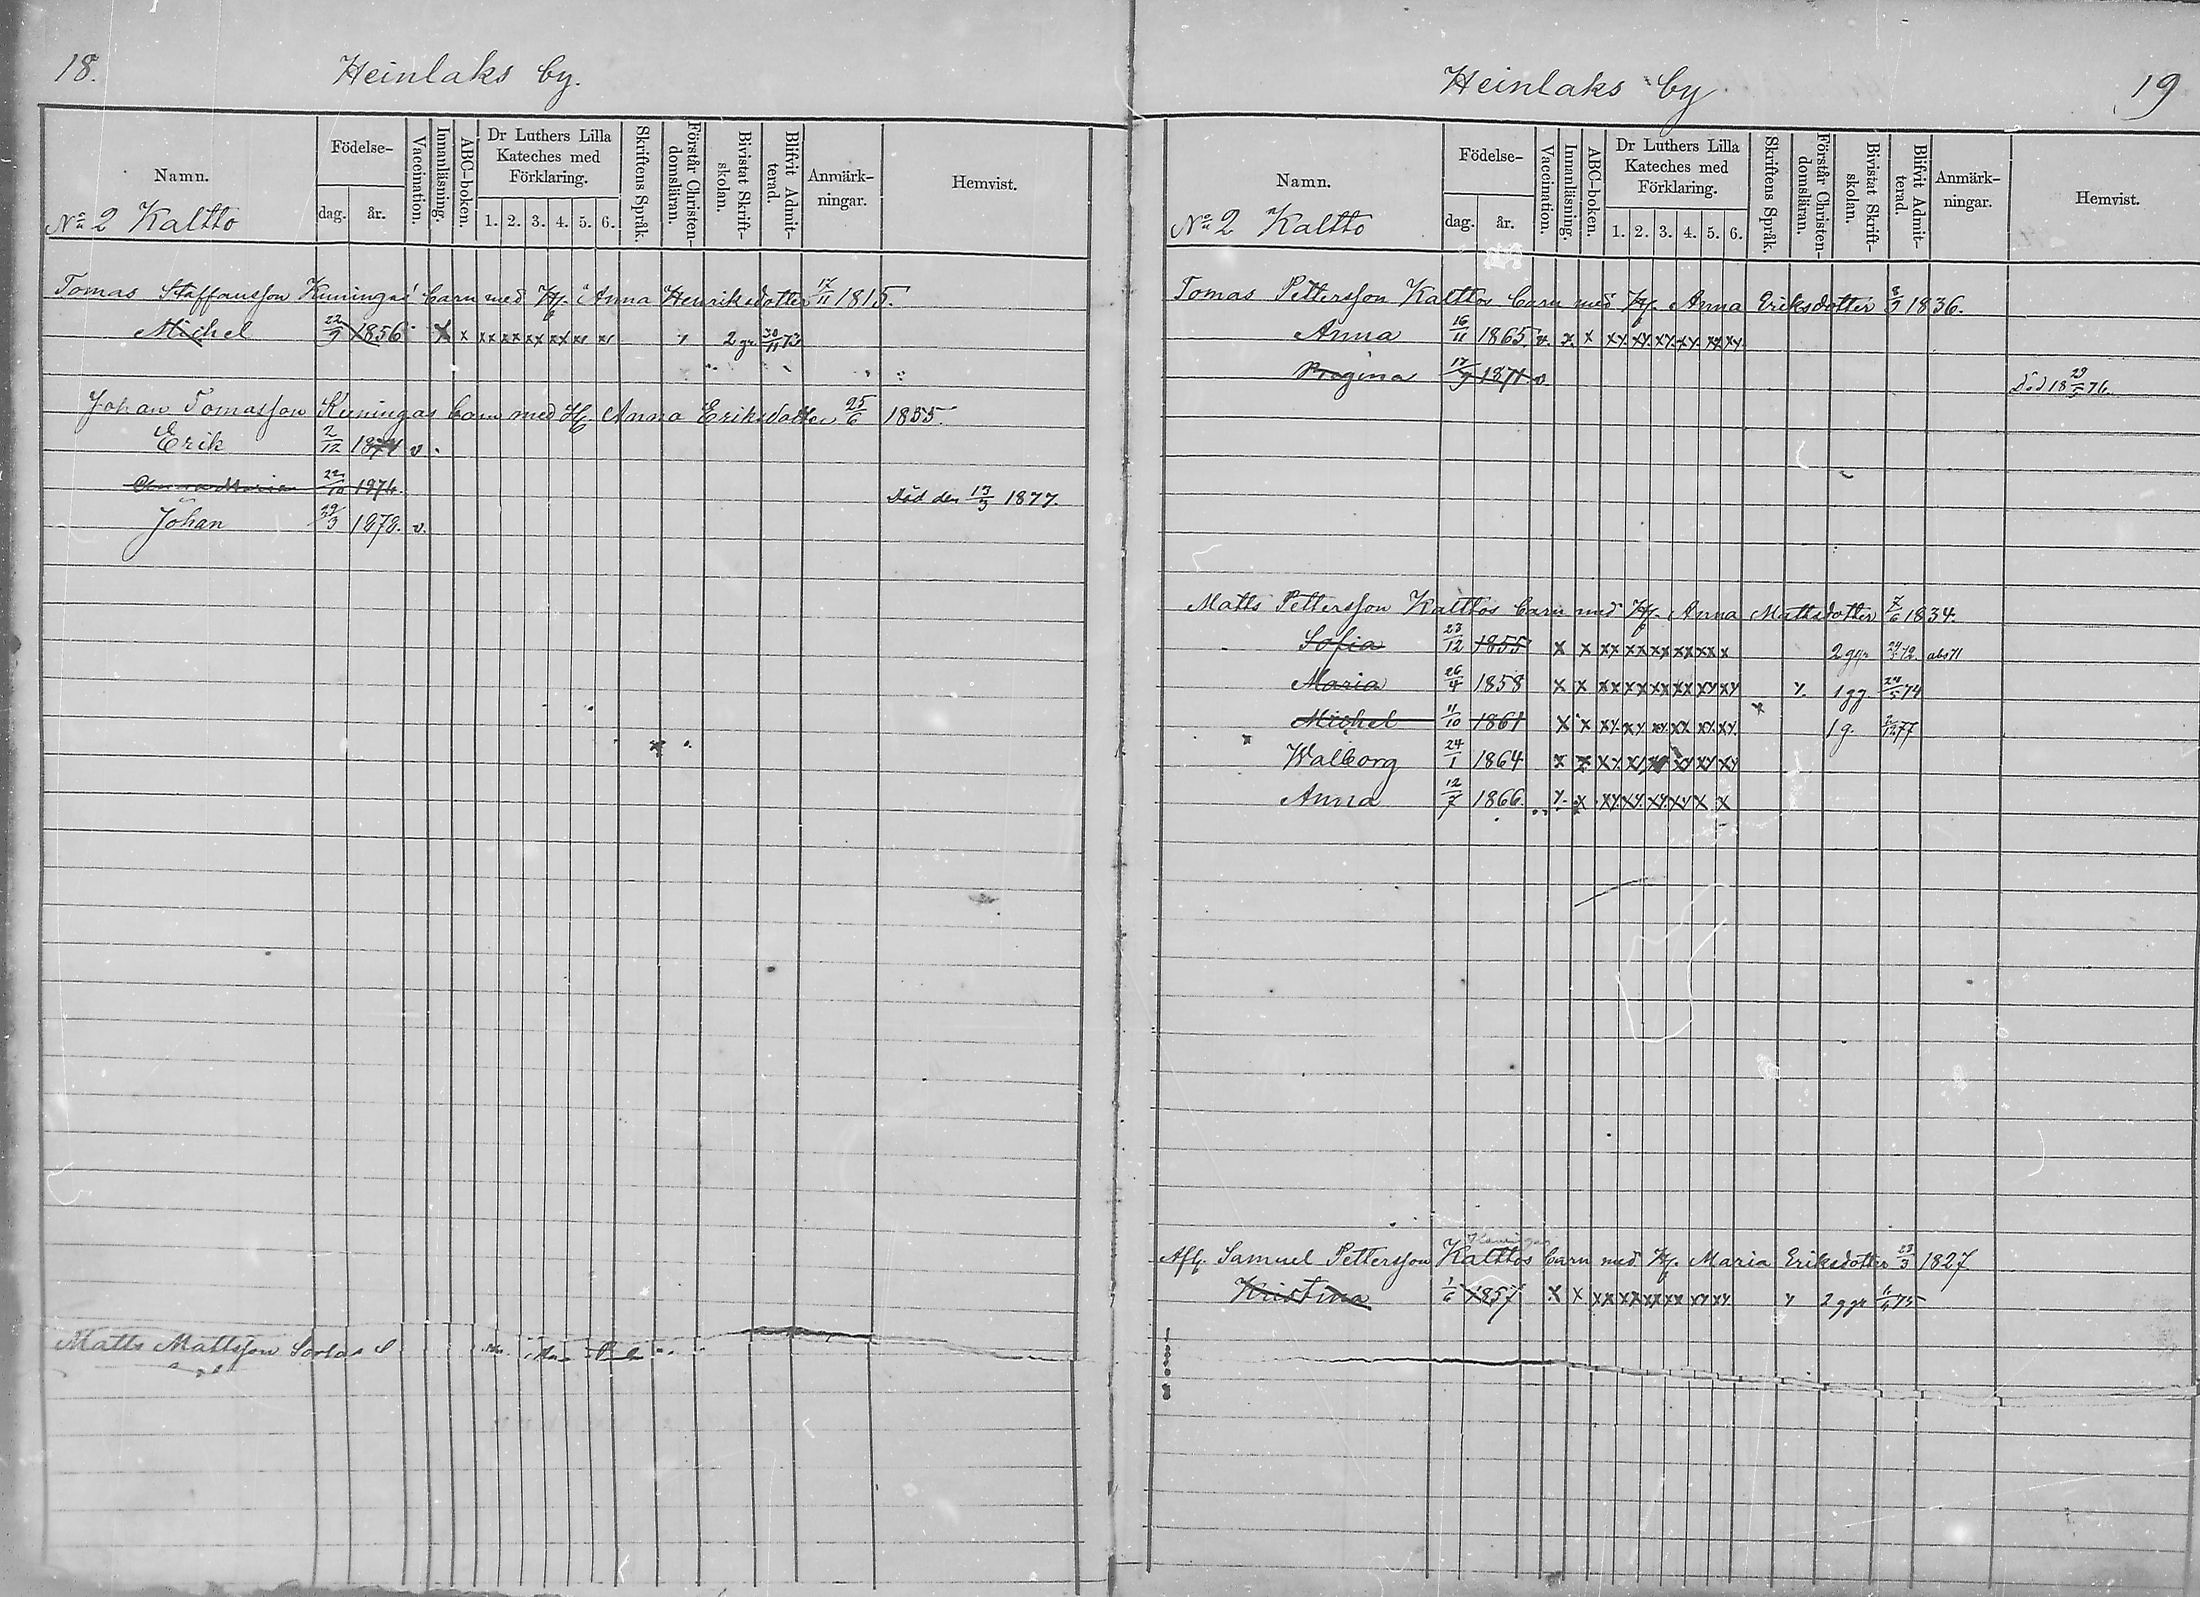 18.
Heinlaks by.
Namn.
Födelse-
dag. år.
Vaccination.
Innanläsning.
ABC-boken.
Dr Luthers Lilla
Kateches med
Förklaring.
1. 2. 3. 4. 5. 6.
Skriftens Språk.
Förstår Christen-
domsläran.
Bivistat Skrift-
skolan.
Blifvit Admit-
terad.
Anmärk-
ningar.
Hemvist.
No 2 Kaltto
Tomas Staffansson Kuningas barn med H. Anna Henriksdotter 17/11 1815.
Michel 22/9 1856 x x xx xx xx xx xx xx 2 gr 30/11 73
Johan Tomasson Kuningas barn med H. Anna Eriksdotter 25/6 1855.
Erik 2/12 1871 v.
Anna Maria 22/10 1874. Död den 13/3 1877.
Johan 29/3 1878. v.
Matts Mattsson
Heinlaks by
19
Namn.
Födelse-
dag. år.
Vaccination.
Innanläsning.
ABC-boken.
Dr Luthers Lilla
Kateches med
Förklaring.
1. 2. 3. 4. 5. 6.
Skriftens Språk.
Förstår Christen-
domsläran.
Bivistat Skrift-
skolan.
Blifvit Admit-
terad.
Anmärk-
ningar.
Hemvist.
No 2 Kaltto
Tomas Pettersson Kalttos barn med H. Anna Eriksdotter 8/9 1836.
Anna 16/11 1865. v. x. x xx xx xx xx xx xx
Regina 17/9 1871 v. Död 18 29/5 76.
Matts Pettersson Kalttos barn med H. Anna Mattsdotter 7/6 1834.
Sofia 23/12 1855 x x xx xx xx xx xx x 2 ggr 72. abs 71
Maria 26/4 1858 x x xx xx xx xx xx xx 1 gg 24/5 74
Michel 11/10 1861 x x xx xx xx xx xx xx x 1 g. 77
Walborg 24/1 1864 x x xx xx xx xx xx
Anna 12/7 1866. x xx xx xx xx x x
Afl. Samuel Pettersson Kalttos barn med H. Maria Eriksdotter 23/3 1827.
Kristina 1/6 1857 x x xx xx xx xx xx xx 2 ggr 75